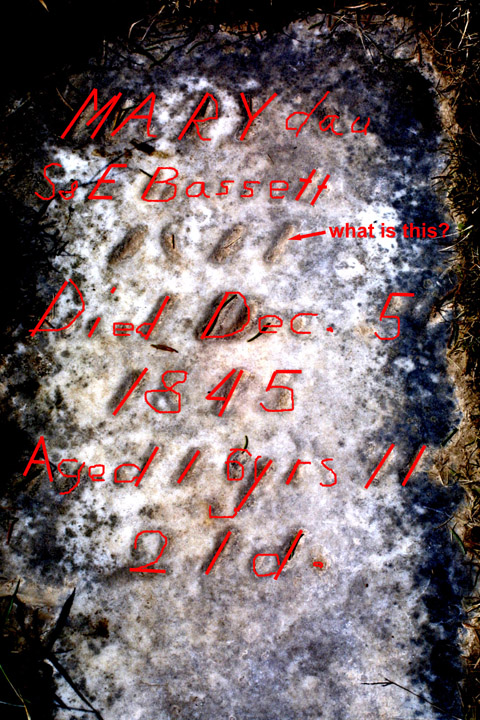 MARY dau
S & E Bassett
what is this?
Died Dec. 5
1845
Aged 16yrs 11
21d.